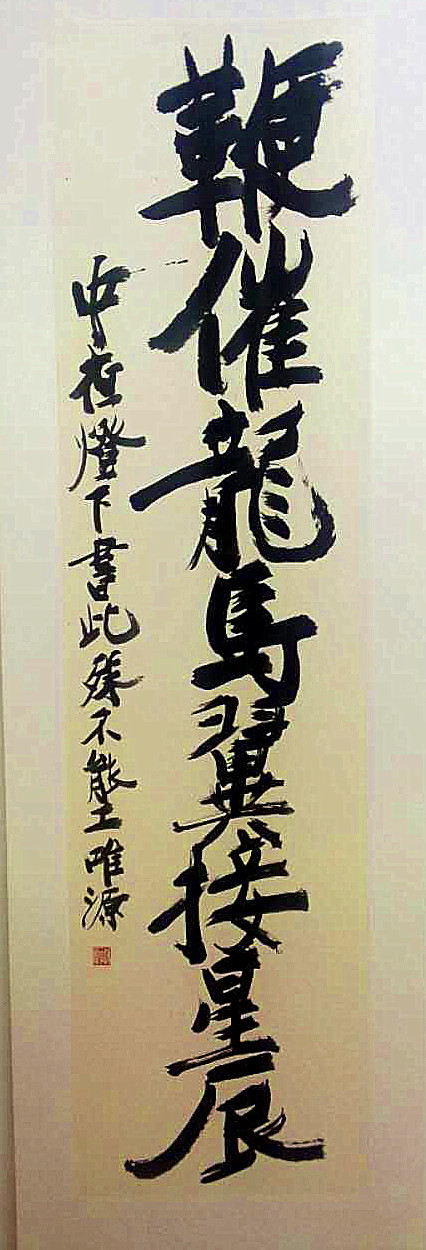 鞭催龍馬翼接星辰
中夜燈下書此殊不能工 唯源